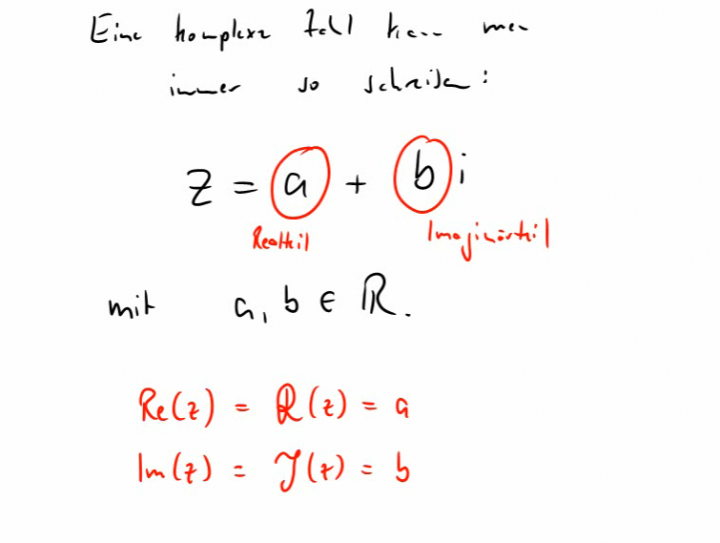 Eine komplexe Zahl kann man
immer so schreiben:
z = a + bi
Realteil Imaginärteil
mit a, b ∈ ℝ.
Re(z) = ℜ(z) = a
Im(z) = ℑ(z) = b